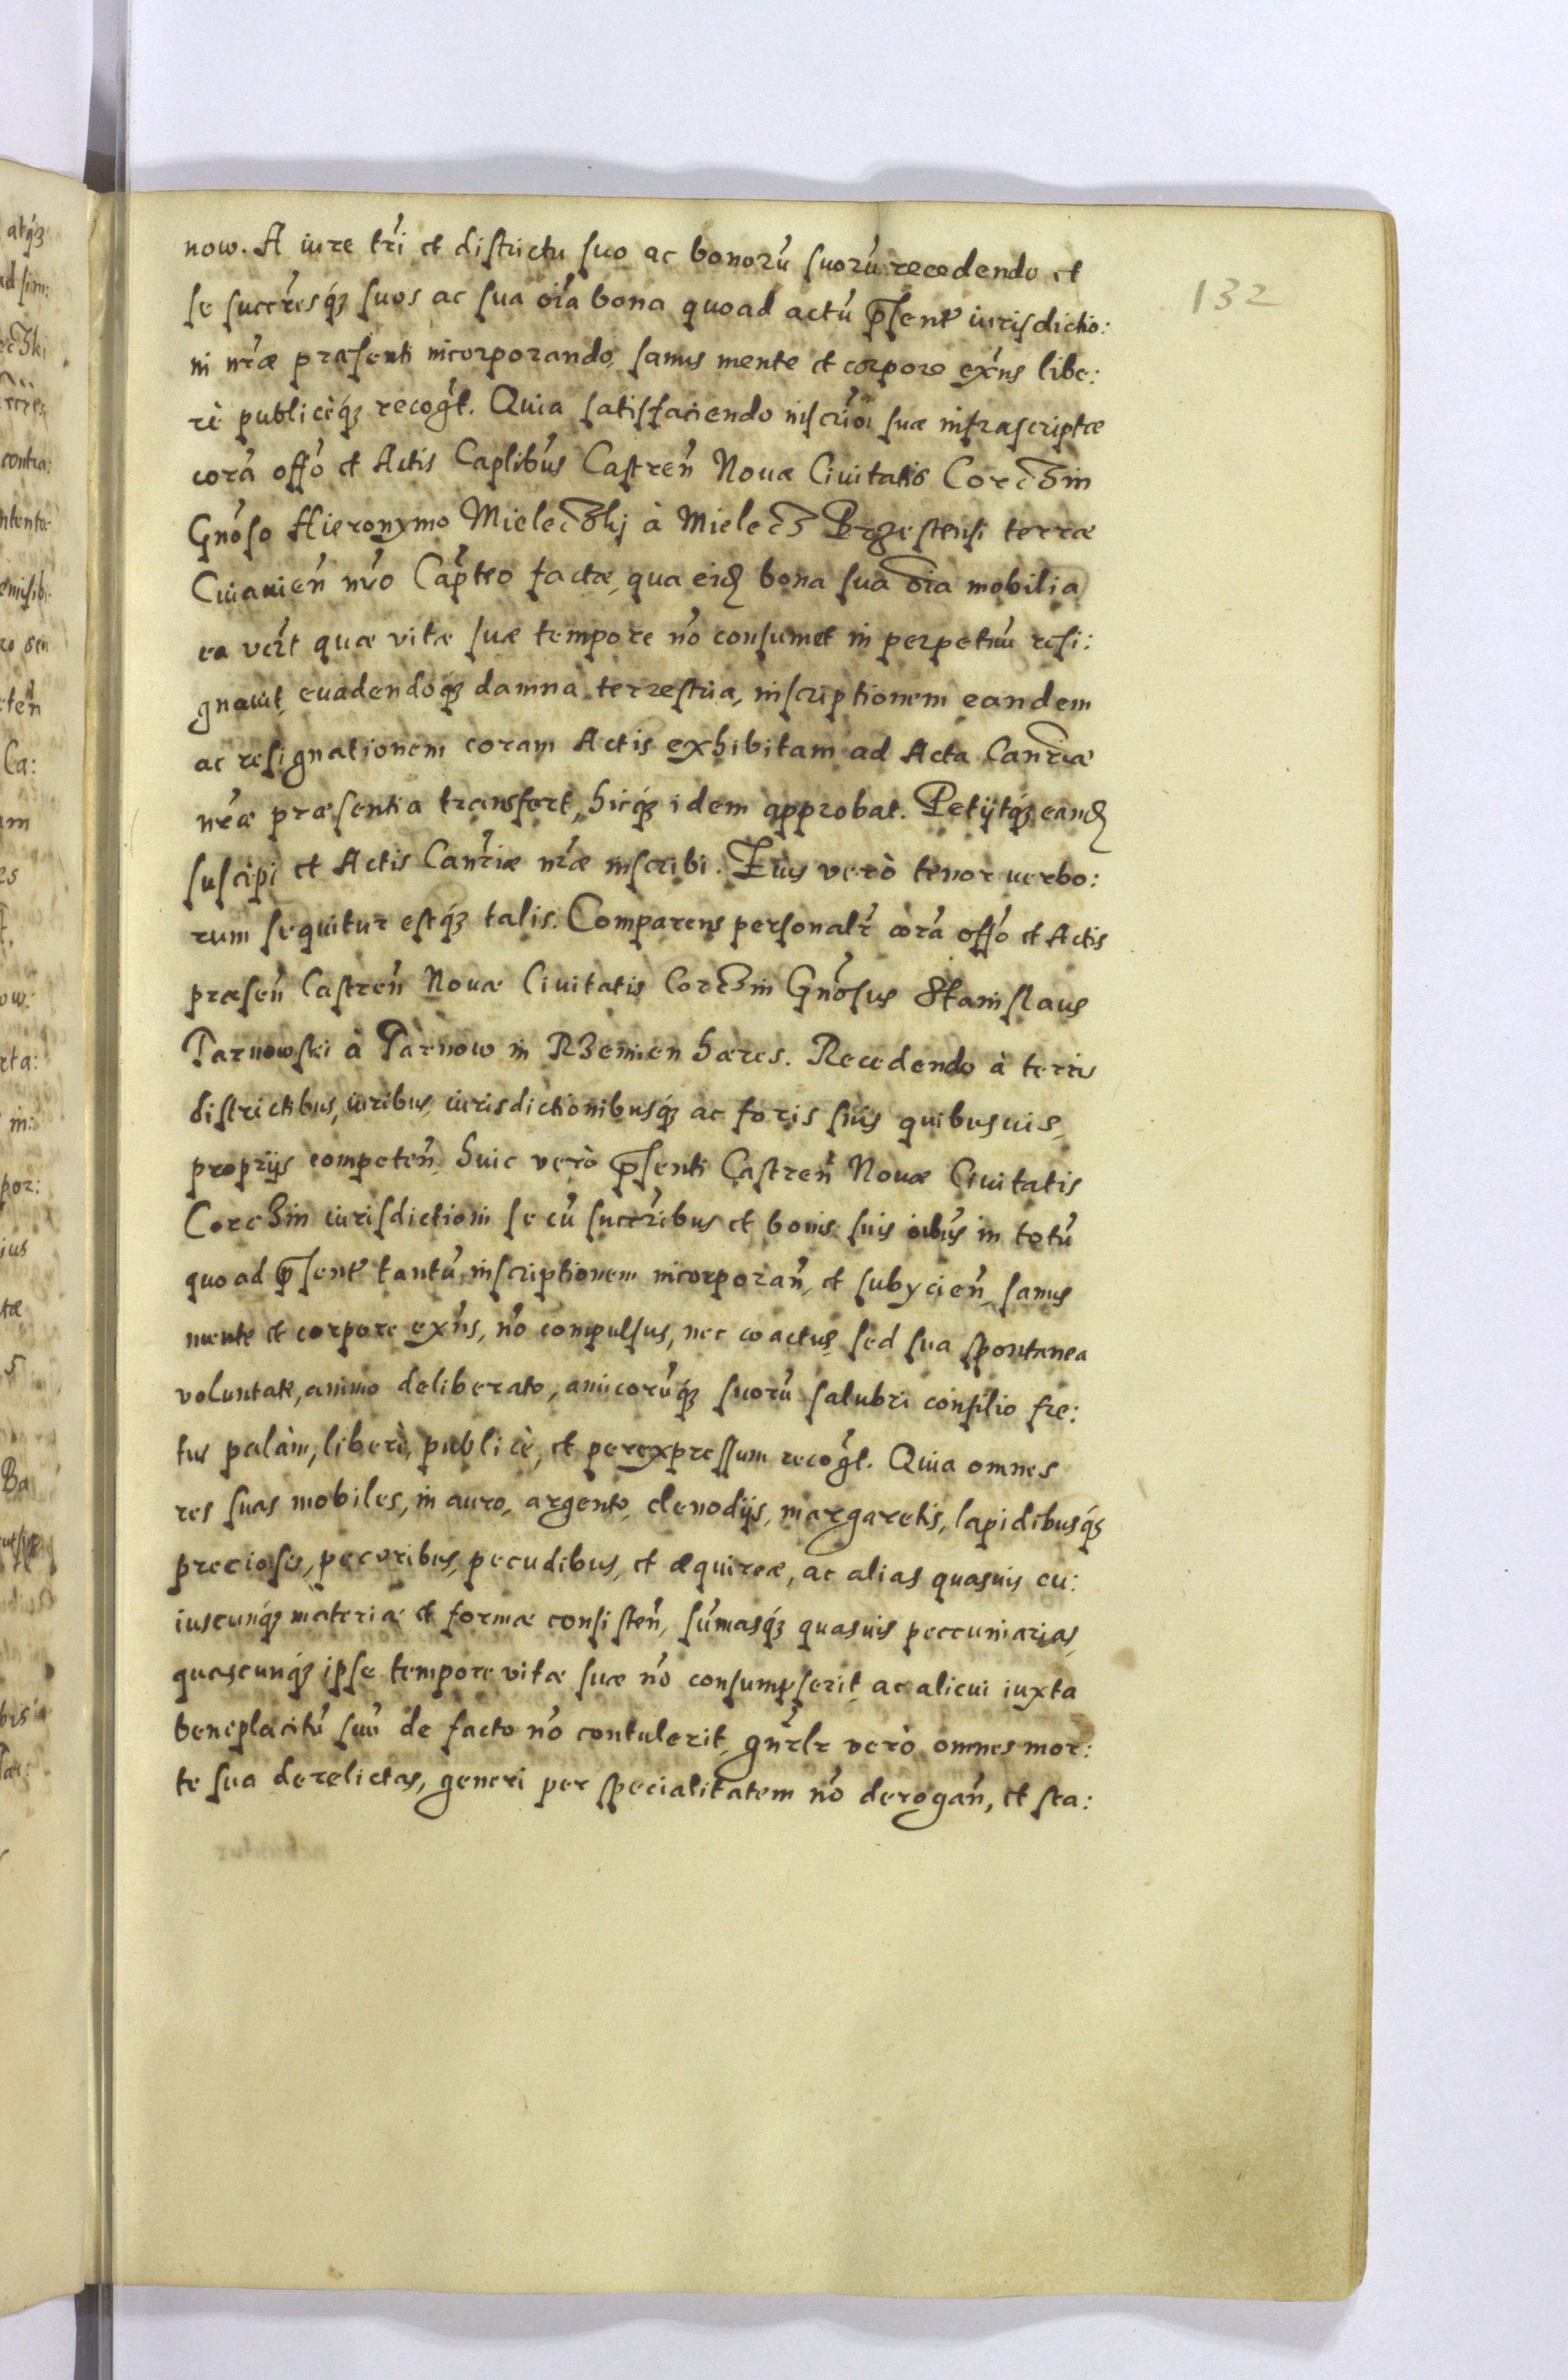 132
now. A iure tri et districtu suo ac bonorũ suorũ recedendo et
se succresq́; suos ac sua oĩa bona quoad actũ p̃sent iurisdictio:
ni nr̃æ præsenti incorporando, sanus mente et corpore exñs libe:
rè publicèq́; recogt. Quia satisfaciendo inscrõi suæ infrascriptæ
corã offõ et Actis Caplibus Castreñ Nouæ Ciuitatis Corczin
Gnõso Hieronymo Mieleczkj à Mielecz Brzestensi terræ
Cuiauień nr̃o Cap̃teo factæ, qua eid bona sua oĩa mobilia
ea vert quæ vitæ suæ tempore nõ consumet in perpetuũ resi:
gnauit, euadendoq́; damna terrestria, inscriptionem eandem
ac resignationem coram Actis exhibitam ad Acta Canr̃iæ
nr̃æ præsentia transfert, hicq́; idem approbat. Petijtq́; eand
suscipi et Actis Canr̃iæ nr̃æ inscribi. Eius verò tenor uerbo:
rum sequitur estq́; talis. Comparens personalr̃ corã offõ et Actis
præseñ Castreñ Nouæ Ciuitatis Corczin Gnõsus Stanislaus
Tarnowski à Tarnow in Rzemien hæres. Recedendo à terris
districtibus, iuribus, iurisdictionibusq́; ac foris suis quibusuis,
proprijs competeñ, huic verò p̃senti Castreñ Nouæ Ciuitatis
Corczin iurisdictioni se cũ succribus et bonis suis oĩbus in totũ
quoad p̃sent tantũ inscriptionem incorporañ, et subycień, sanus
mente et corpore exñs, nõ compulsus, nec coactus, sed sua spontanea
voluntate, animo deliberato, amicorũq́; suorũ salubri consilio fre:
tus palàm, liberè, publicè, et per expressum recogt. Quia omnes
res suas mobiles, in auro, argento, clenodijs, margaretis, lapidibusq́;
preciosis, pecoribus, pecudibus, et æquireæ, ac alias quasuis cu:
iuscunq́; materiæ et formæ consisteñ, sũmasq́; quasuis peccuniarias,
quascunq́; ipse tempore vitæ suæ nõ consumpserit, ac alicui iuxta
beneplacitũ suũ de facto nõ contulerit, gnr̃lr verò omnes mor:
te sua derelictas, generi per specialitatem nõ derogañ, et sta: